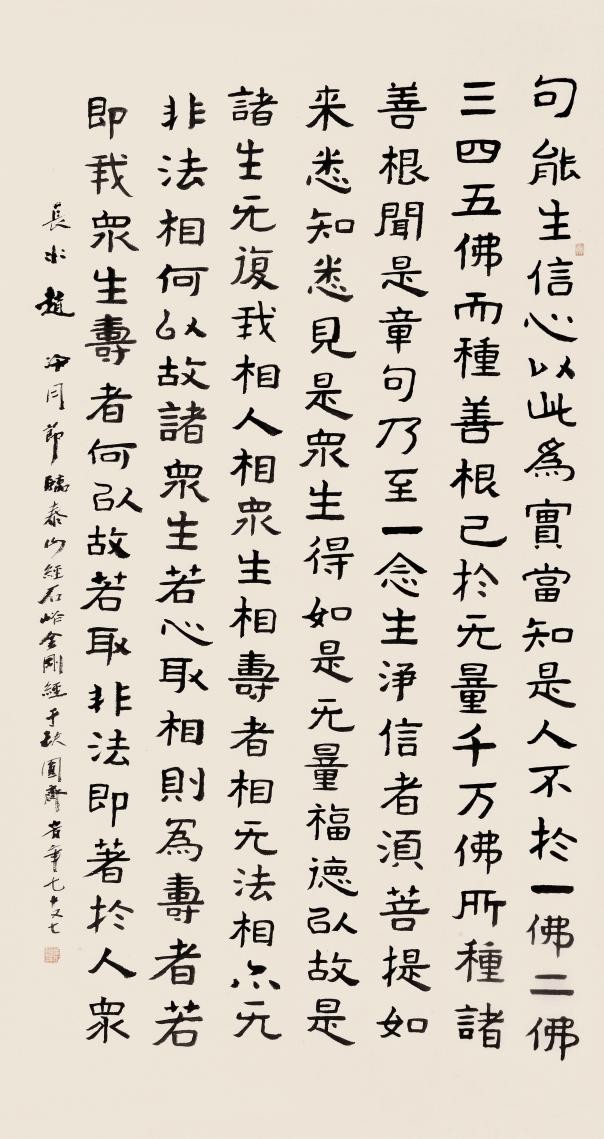 句能生信心以此為實當知是人不於一佛二佛
三四五佛而種善根已於无量千万佛所種諸
善根聞是章句乃至一念生淨信者湏菩提如
来悉知悉見是衆生得如是无量福德以故是
諸生无復我相人相衆生相壽者相无法相亦无
非法相何以故諸衆生若心取相則為壽者若
即我衆生壽者何以故若取非法即著於人衆
長水趙冷月節臨泰山經石峪金剛經于缺圓齋時年七十又七